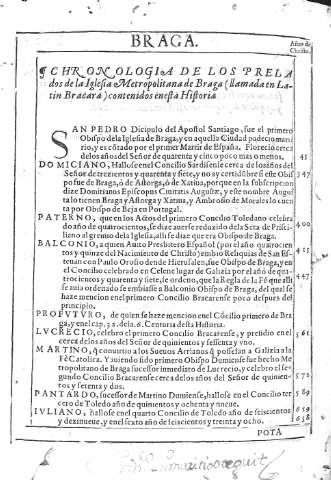 BRAGA.
Años de Christo.
¶ CHRONOLOGIA DE LOS PRELA
dos de la Iglesia Metropolitana de Braga (llamada en La-
tin Bracara) contenidos en esta Historia.
SAN PEDRO Dicipulo del Apostol Santiago, fue el primero
Obispo de la Iglesia de Braga, y en aquella Ciudad padecio marti-
rio, y es côtado por el primer Martir de España. Florecio cerca
de los años del Señor de quarenta y cinco poco mas o menos, 45
DOMICIANO, Hallose en el Concilio Sardicense cerca de los años del
Señor de trezientos y quarenta y siete, y no ay certidûbre si este Obis 347
po fue de Braga, ó de Astorga, ó de Xatiua, porque en la subscripcion
dize Domitianus Episcopus Ciuitatis Augustæ, y este nombre August
ta lo tienen Braga y Astorga y Xatiua, y Ambrosio de Morales lo cuen
ta por Obispo de Beja en Portugal.
PATERNO, que en los Actos del primero Concilio Toledano celebra
do año de quatrocientos, se dize auerse reduzido de la Seta de Prisci- 400
liano al gremio de la Iglesia, alli se dize que era Obispo de Braga.
BALCONIO, a quien Auito Presbytero Español (por el año quatrocien
tos y quinze del Nacimiento de Christo) embio Reliquias de San Es- 415
teuan con Paulo Orosio dende Hierusalen, fue Obispo de Braga, y en
el Concilio celebrado en Celene lugar de Galizia por el año de qua-
trocientos y quarenta y siete, se ordeno, que la Regla de la Fè que alli 447
se auia ordenado se embiasse a Balconio Obispo de Braga, del qual se
haze mencion en el primero Concilio Bracarense poco despues del
principio.
PROFUTURO, de quien se haze mencion en el Cõcilio primero de Bra
ga, y en el cap. 32. de la. 6. Centuria desta Historia.
LVCRECIO, celebro el primero Concilio Bracarense, y presidio en el 561
cerca de los años del Señor de quinientos y sessenta y uno.
MARTINO, q̃ conuirtio a los Sueuos Arrianos q̃ posseîan a Galizia a la
Fè Catolica. Y auiendo sido primero Obispo Dumiense fue hecho Me
tropolitano de Braga sucessor inmediato de Lucrecio, y celebro el se-
gundo Concilio Bracarense cerca de los años del Señor de quinien- 572
tos y setenta y dos.
PANTARDO, sucessor de Martino Dumiense, hallose en el Concilio ter 589
cero de Toledo año de quinientos y ochenta y nueue.
IVLIANO, hallose en el quarto Concilio de Toledo año de seiscientos 659
y dezinueue, y en el sexto año de seiscientos y treinta y ocho. 638
POTA